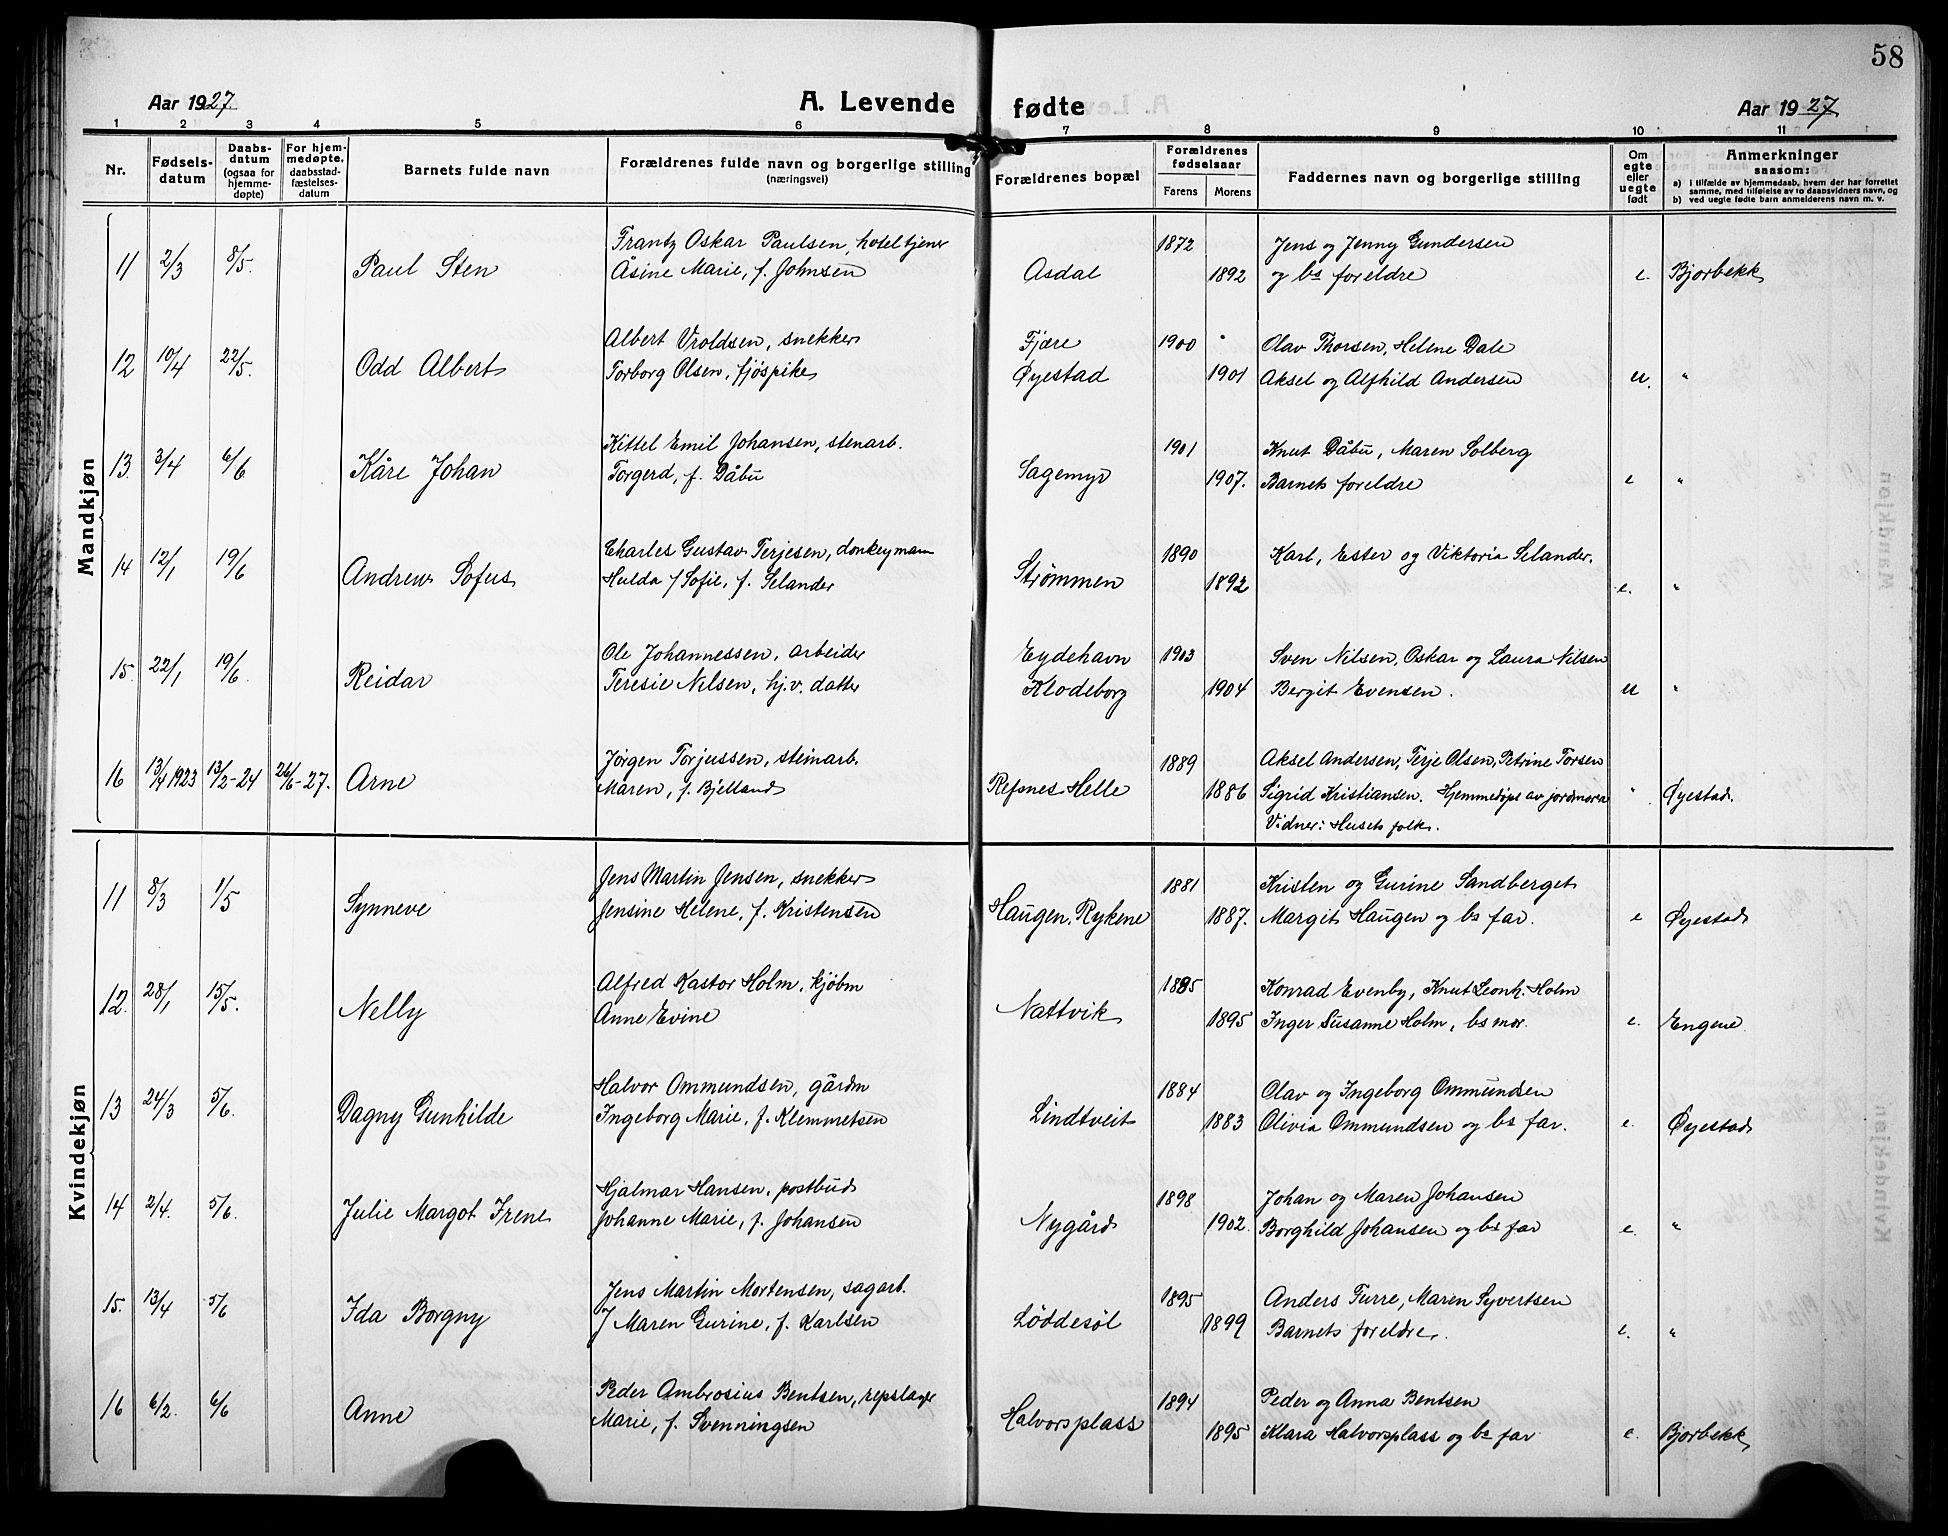 58
Aar 1927.
A. Levende fødte
Aar 1927
1 2 3 4 5 6 7 8 9 10 11
Nr.
Fødsels-
datum
Daabs-
datum
(ogsaa for
hjemme-
døpte)
For hjem-
medøpte,
daabsstad-
fæstelses-
datum
Barnets fulde navn
Forældrenes fulde navn og borgerlige stilling
(næringsvei)
Forældrenes bopæl
Forældrenes
fødselsaar
Farens Morens
Faddernes navn og borgerlige stilling
Om
egte
eller
uegte
født
Anmerkninger
saasom:
a) i tilfælde av hjemmedaab, hvem der har forrettet
samme, med tilføielse av to daabsvidners navn, og
b) ved uegte fødte barn anmelderens navn m. v.
Mandkjøn
Frantz Oskar Paulsen, hoteltjener 1872 Jens og Jenny Gundersen
11 2/3 8/5. Paul Sten Åsine Marie, f. Johnsen Asdal 1892 og bs foreldre e. Bjorbekk
Albert Vroldsen, snekker Fjære 1900 Olav Thorsen, Helene Dale
12 10/4 22/5. Odd Albert Torborg Olsen, fjøspike Øyestad 1901 Aksel og Alfhild Andersen u. "
Kittel Emil Johansen, stenarb. 1901 Knut Dåbu, Maren Solberg
13. 3/4 6/6 Kåre Johan Torgerd, f. Dåbu Sagemyr 1907. Barnets foreldre e "
Charles Gustav Terjesen, donkeyman 1890 Karl, Ester og Viktoria Selander.
14 12/1 19/6 Andrew Sofus Hulda Sofie, f. Selander Strømmen 1892 e. "
Ole Johannessen, arbeider Eydehavn 1903 Sven Nilsen, Oskar og Laura Nilsen
15. 22/1 19/6. Reidar Teresie Nilsen, hj.v. datter Klodeborg 1904 Bergit Evensen. u "
Jørgen Torjussen, steinarb. 1889 Aksel Andersen, Terje Olsen, Petrine Torsen
16 13/4 1923 13/2-24 26/6-27. Arne Maren, f. Bjelland Refsnes Helle 1886 Sigrid Kristiansen. Hjemmedøpt av jordmora " Øyestad.
Vidner: Husets folk.
Kvindekjøn
Jens Martin Jensen, snekker 1881 Kristen og Gurine Sandberget
11 8/3 1/5 Synneve Jensine Helene, f. Kristensen Haugen, Rykene 1887. Margit Haugen og bs far. e Øyestad
Alfred Kastor Holm, kjøbm 1885 Konrad Evenby, Knut Leonh. Holm
12. 28/1 15/5. Nelly Anne Evine Nattvik 1895 Inger Susanne Holm, bs mor. e. Engene
Halvor Ommundsen, gårdm 1884 Olav og Ingeborg Ommundsen
13 24/3 5/6. Dagny Gunhilde Ingeborg Marie, f. Klemmetsen Lindtveit 1883 Olivia Ommundsen og bs far. e. Øyestad
Hjalmar Hansen, postbud 1898 Johan og Maren Johansen
14 2/4. 5/6. Julie Margot Irene Johanne Marie, f. Johansen Nygård 1902. Borghild Johansen og bs far e. "
Jens Martin Mortensen, sagarb. 1895 Anders Furre, Maren Syvertsen
15. 13/4 5/6 Ida Borgny Maren Gurine, f. Karlsen Løddesøl 1899 Barnets foreldre. e. "
Peder Ambrosius Bentsen, repslager 1894 Peder og Anna Bentsen
16 6/2. 6/6 Anne Marie, f. Svenningsen Halvorsplass 1895 Klara Halvorsplass og bs far e. Bjorbekk